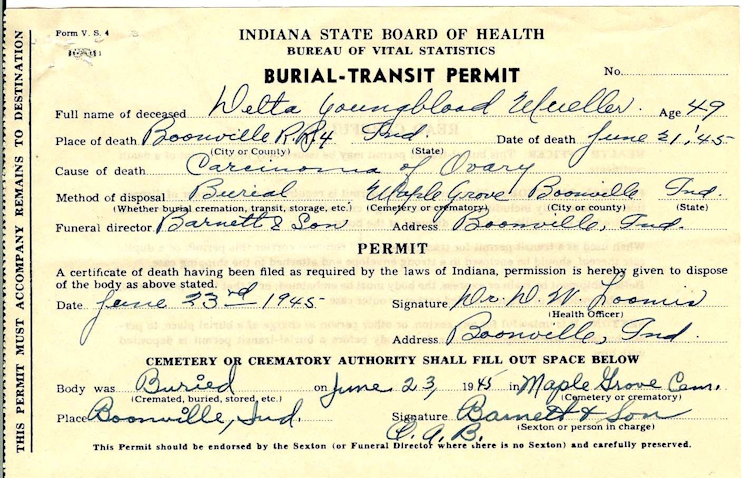 Form V. S. 4
INDIANA STATE BOARD OF HEALTH
BUREAU OF VITAL STATISTICS
BURIAL-TRANSIT PERMIT
No.
Full name of deceased Delta Youngblood Mueller. Age 49
Place of death Boonville R.R.4 Ind. Date of death June 21, '45
(City or County) (State)
Cause of death Carcinoma of Ovary
Method of disposal Burial Maple Grove Boonville Ind.
(Whether burial cremation, transit, storage, etc.) (Cemetery or crematory) (City or county) (State)
Funeral director Barnett & Son Address Boonville, Ind.
PERMIT
A certificate of death having been filed as required by the laws of Indiana, permission is hereby given to dispose
of the body as above stated.
Date June 23rd 1945 Signature Dr. D. W. Loomis
(Health Officer)
Address Boonville, Ind.
CEMETERY OR CREMATORY AUTHORITY SHALL FILL OUT SPACE BELOW
Body was Buried on June 23, 1945 in Maple Grove Cem.
(Cremated, buried, stored, etc.) (Cemetery or crematory)
Place Boonville, Ind. Signature Barnett & Son
C. A. B. (Sexton or person in charge)
This Permit should be endorsed by the Sexton (or Funeral Director where there is no Sexton) and carefully preserved.
THIS PERMIT MUST ACCOMPANY REMAINS TO DESTINATION